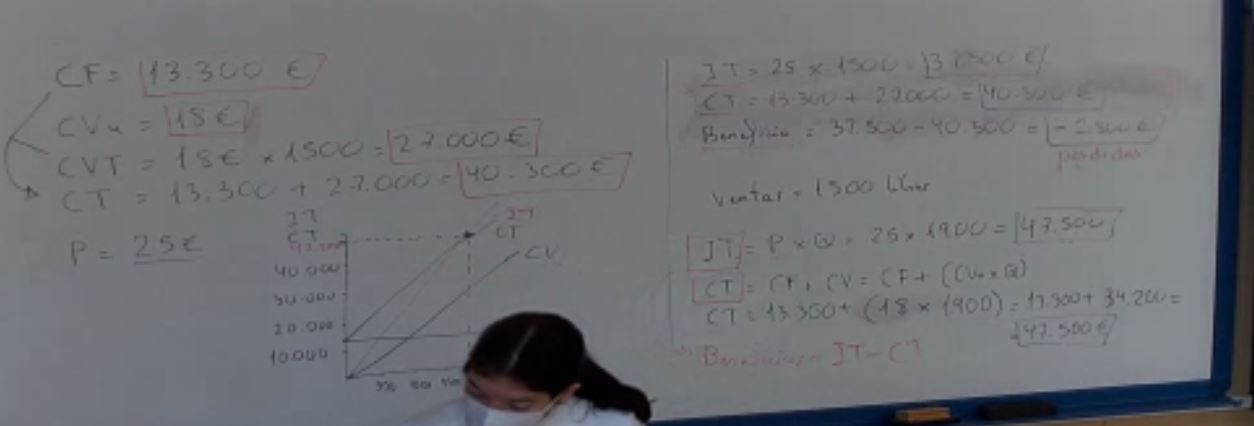 CF = 13.300 €
CVu = 18 €
CVT = 18 € × 1500 = 27.000 €
CT = 13.300 + 27.000 = 40.300 €
P = 25 €
IT
CT
40.000
30.000
20.000
10.000
IT
CT
CV
IT = 25 × 1500 = 37.500 €
CT = 13.300 + 27.000 = 40.300 €
Beneficio = 37.500 - 40.300 = - 2.800 €
pérdidas
Ventas = 1500
IT = P × Q = 25 × 1900 = 47.500
CT = CF + CV = CF + (CVu × Q)
CT = 13.300 + (18 × 1900) = 13.300 + 34.200 =
47.500 €
Beneficios = IT - CT